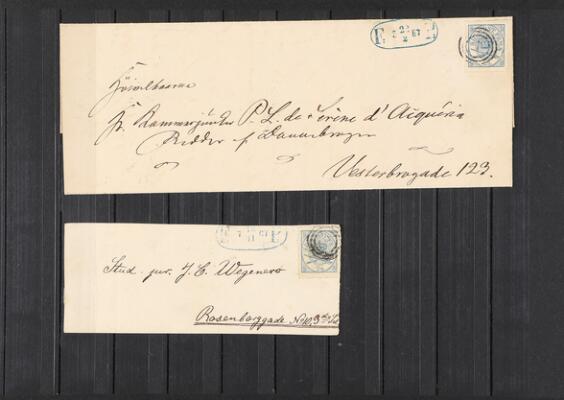 F. 23 67
2
Høivelbaarne
Hr. Kammerjunker P. L. de Sréne d'Acquéria
Ridder af Dannebrogen
Vesterbrogade 123.
11
Stud. jur. J. C. Wegener
Rosenborggade No 10,